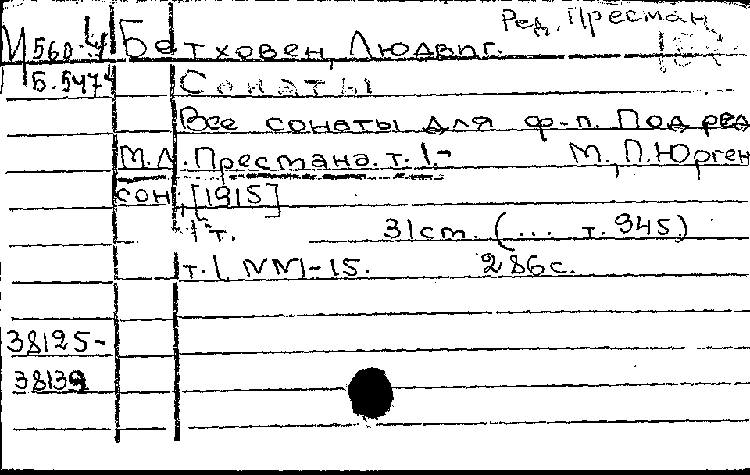 Ред. Пресман
И 560.4 Бетховен, Людвиг.
Б. 5474 Сонаты
Все сонаты для ф-п. Под ред
М.Л. Пресмана. т. 1.- М., П. Юрген
сон, [1915]
1 т. 31 ст. (... т. 945)
т. 1. NN1-15. 286 с.
38125-
38139